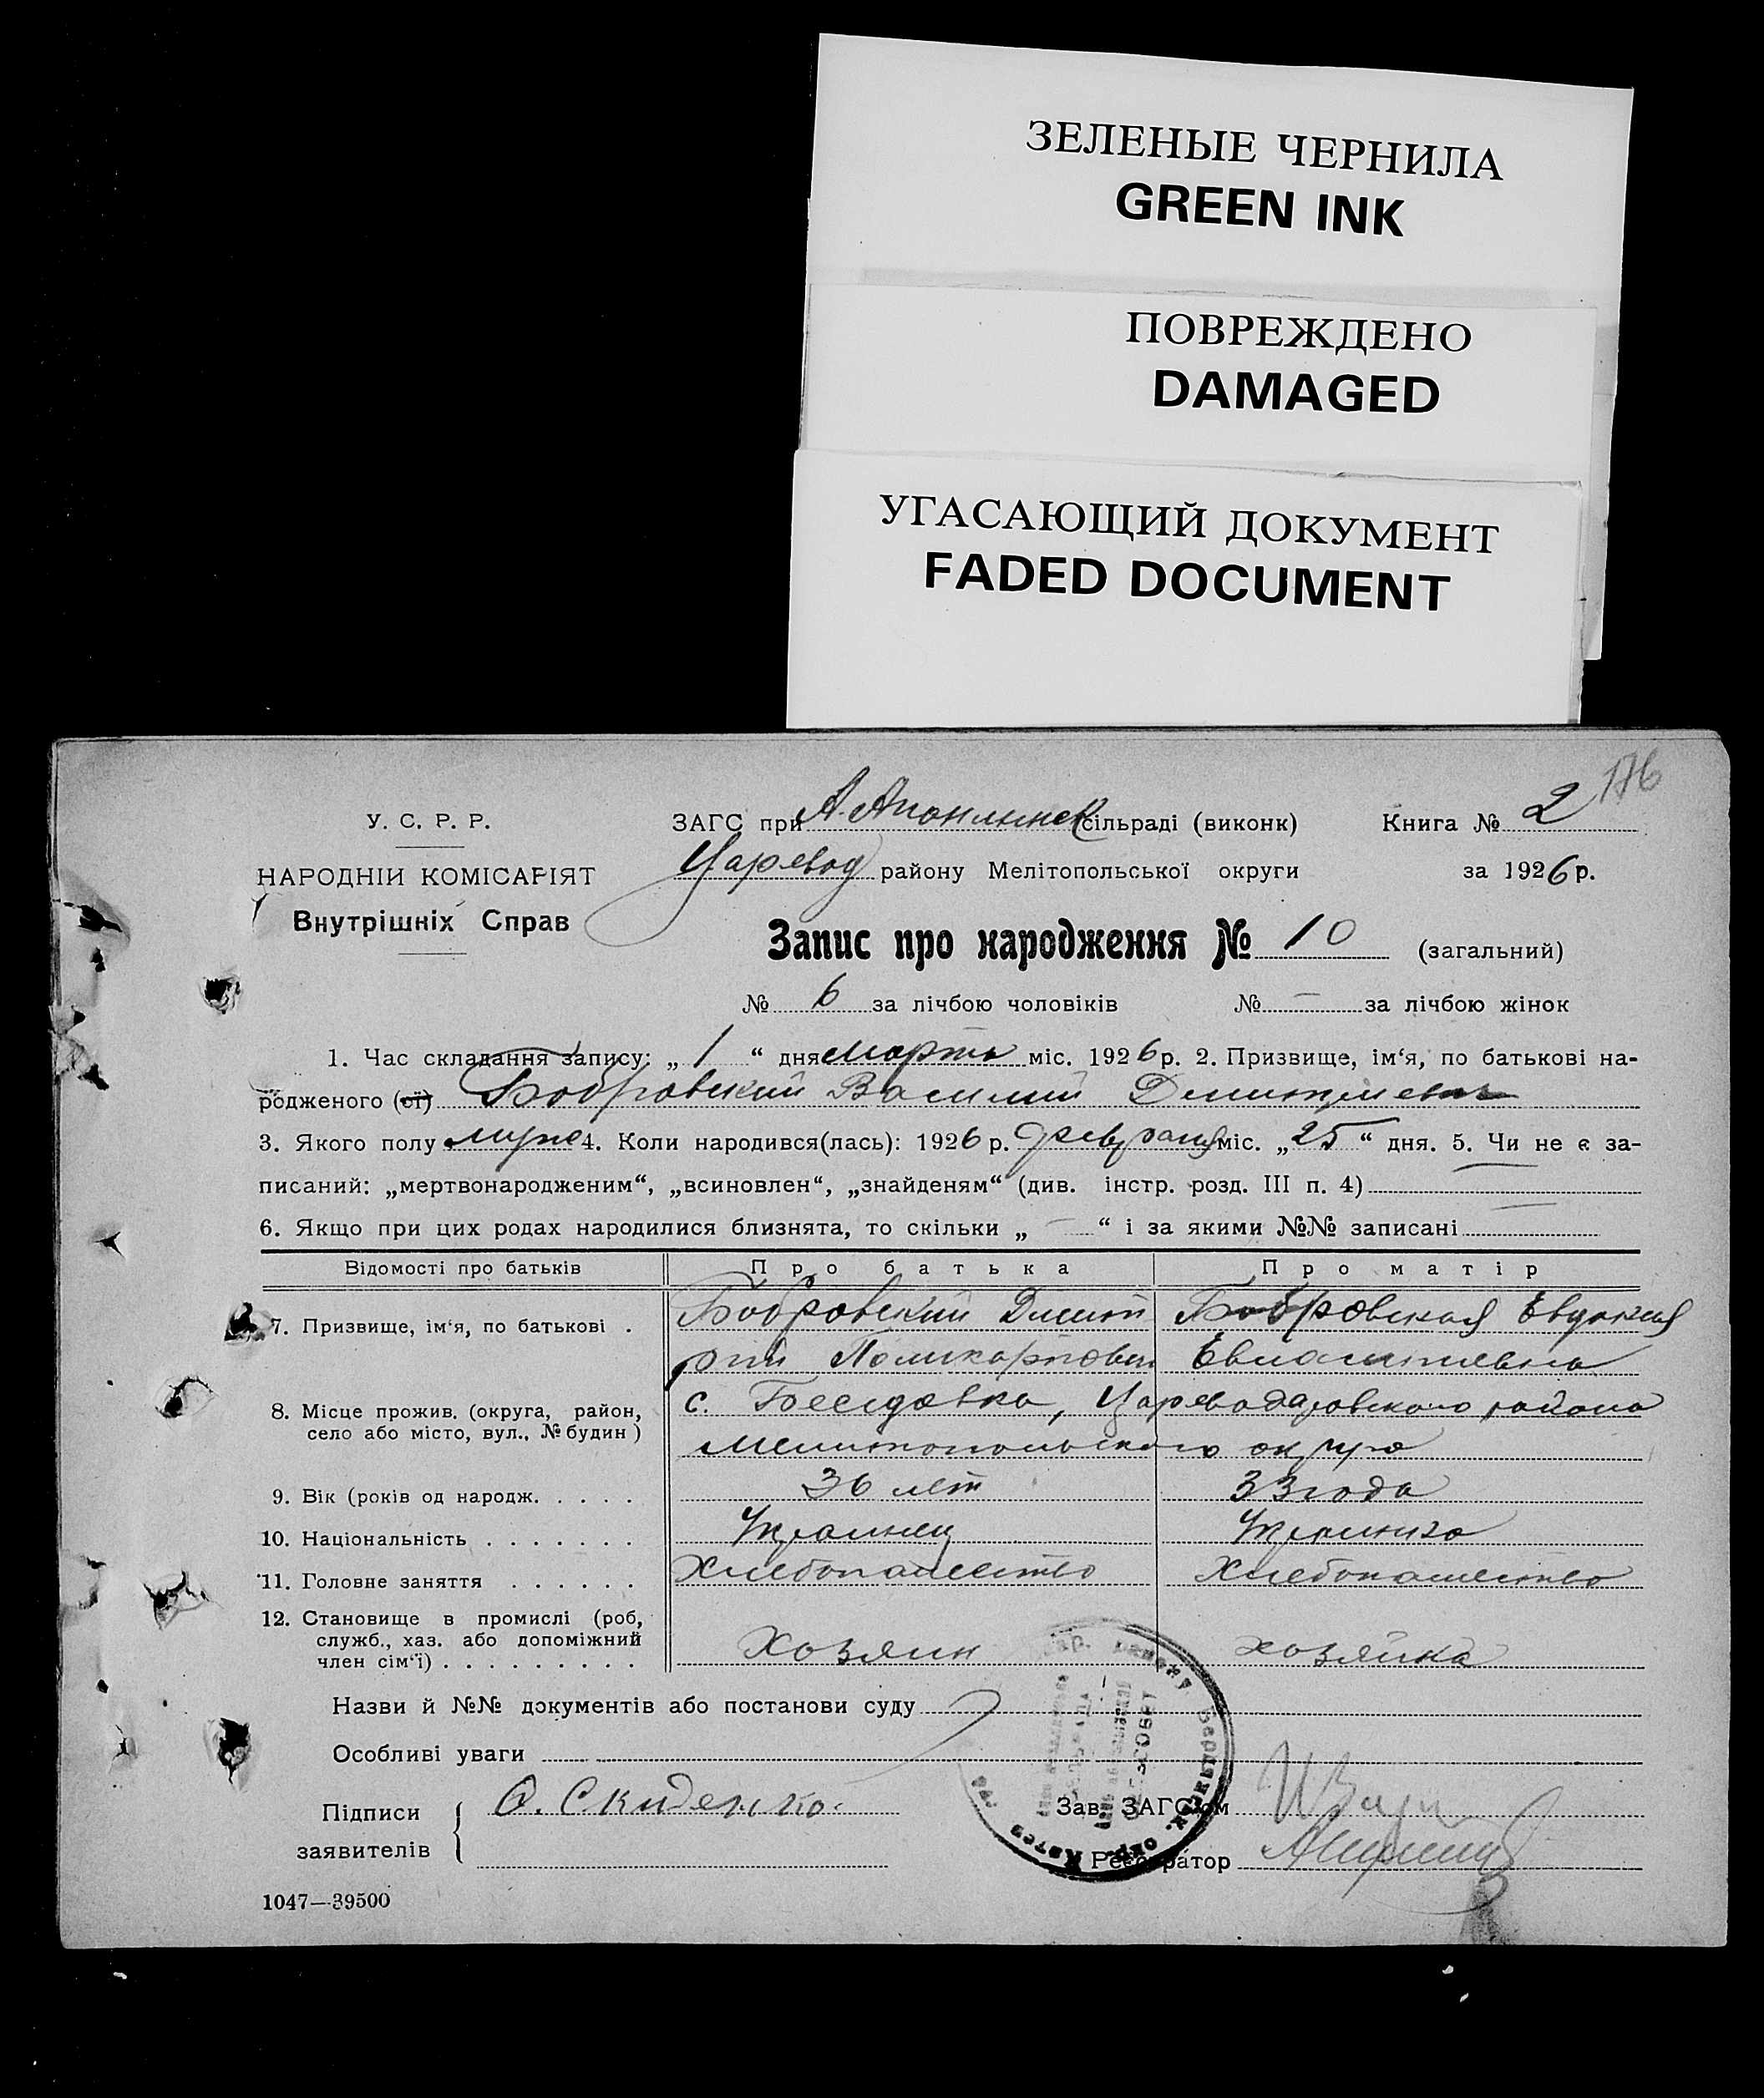 ЗЕЛЕНЫЕ ЧЕРНИЛА
GREEN INK
ПОВРЕЖДЕНО
DAMAGED
УГАСАЮЩИЙ ДОКУМЕНТ
FADED DOCUMENT
176
У. С. Р. Р.
ЗАГС при сільраді (виконк) Книга № 2
Царевод району Мелітопольської округи за 1926 р.
НАРОДНІЙ КОМІСАРІЯТ
Внутрішніх Справ
Запис про народження № 10 (загальний)
№ 6 за лічбою чоловіків № — за лічбою жінок
1. Час складання запису: „ 1 “ дня марта міс. 1926 р. 2. Призвище, ім‘я, по батькові на-
родженого (ої) Бобровский Василий Дмитриевич
3. Якого полу муж 4. Коли народився(лась): 1926 р. февраля міс. „25“ дня. 5. Чи не є за-
писаний: „мертвонародженим“, „всиновлен“, „знайденям“ (див. інстр. розд. III п. 4) —
6. Якщо при цих родах народилися близнята, то скільки „ — “ і за якими №№ записані —
Відомості про батьків Про батька Про матір
7. Призвище, ім‘я, по батькові . Бобровский Дмит Бобровская Евдокия
рий Поликарпович
8. Місце прожив. (округа, район, с. Беседовка, Цареводаровского района
село або місто, вул., № будин) Мелитопольского округа
9. Вік (років од народж. . . . . 36 лет 33 года
10. Національність . . . . . . . Украинец Украинка
11. Головне заняття . . . . . . Хлебопашество Хлебопашество
12. Становище в промислі (роб,
служб., хаз. або допоміжний Хозяин хозяйка
член сім‘ї) . . . . . . . . .
Назви й №№ документів або постанови суду
Особливі уваги
Підписи О. Скиденко. Зав. ЗАГС‘ом
заявителів Реєстратор
1047—39500